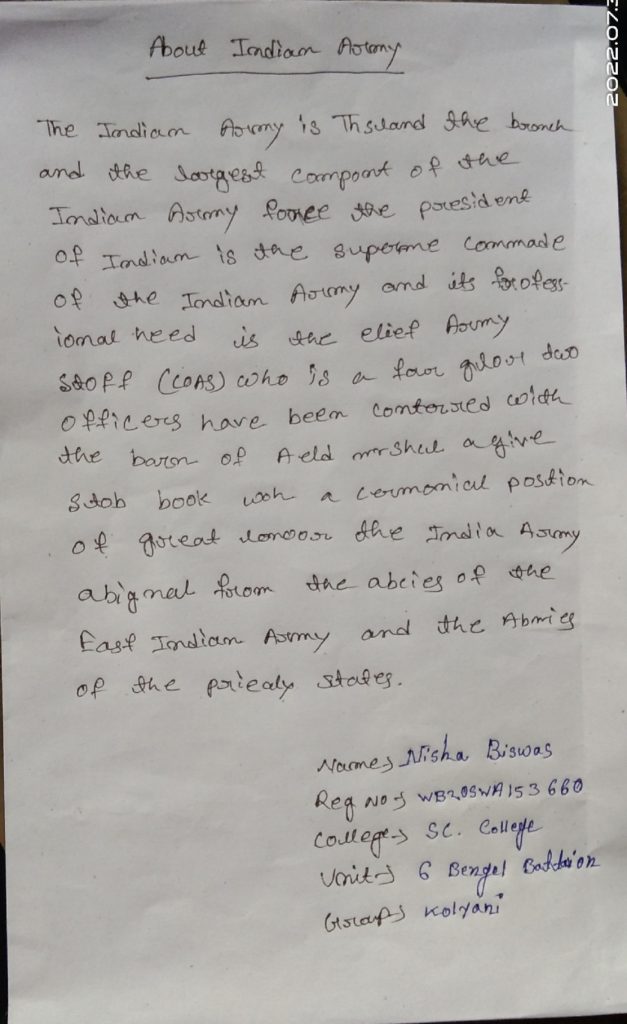 About Indian Army
The Indian Army is Thsland the branch
and the largest compont of the
Indian Army force the president
of Indian is the superme commade
of the Indian Army and its profess-
ional heed is the elief Army
Stoff (COAS) who is a four two
officers have been conterred with
the baron of Aeld mrshal a give
Stob book woh a cermonical postion
of great the India Army
abignal from the abcies of the
East Indian Army and the Abmies
of the priealy states.
Name→ Nisha Biswas
Reg No→ WB20SWA153660
College→ SC. College
Unit→ 6 Bengel Battaion
Group→ Kolyani
2022.07.3